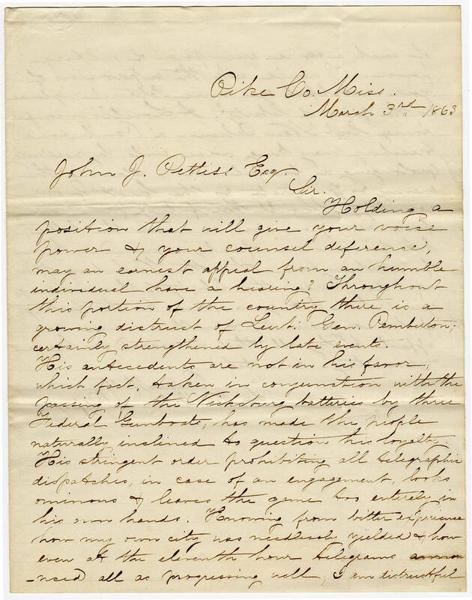 Pike Co. Miss.
March 3rd 1863
John J. Pettus Esq.
Sir.
Holding a
position that will give your voice
power & your counsel diference,
may an earnest appeal from an humble
individual have a hearing? Throughout
this portion of the country there is a
growing distrust of Leut. Gen. Pemberton;
certainly strengthened by late event.
His antecedents are not in his favor,
which fact, taken in conjunction with the
passing of the Vicksburg batteries by three
Federal Gunboats, has made the people
naturally inclined to question his loyalty.
His stringent order prohibiting all telegraphic
dispatches, in case of an engagement, looks
ominous & leaves the game too entirely in
his own hands. Knowing from bitter experience
how my own city was needlessly yielded & how
even at the eleventh hour telegrams annou
-nced all as progressing well, I am distrustful